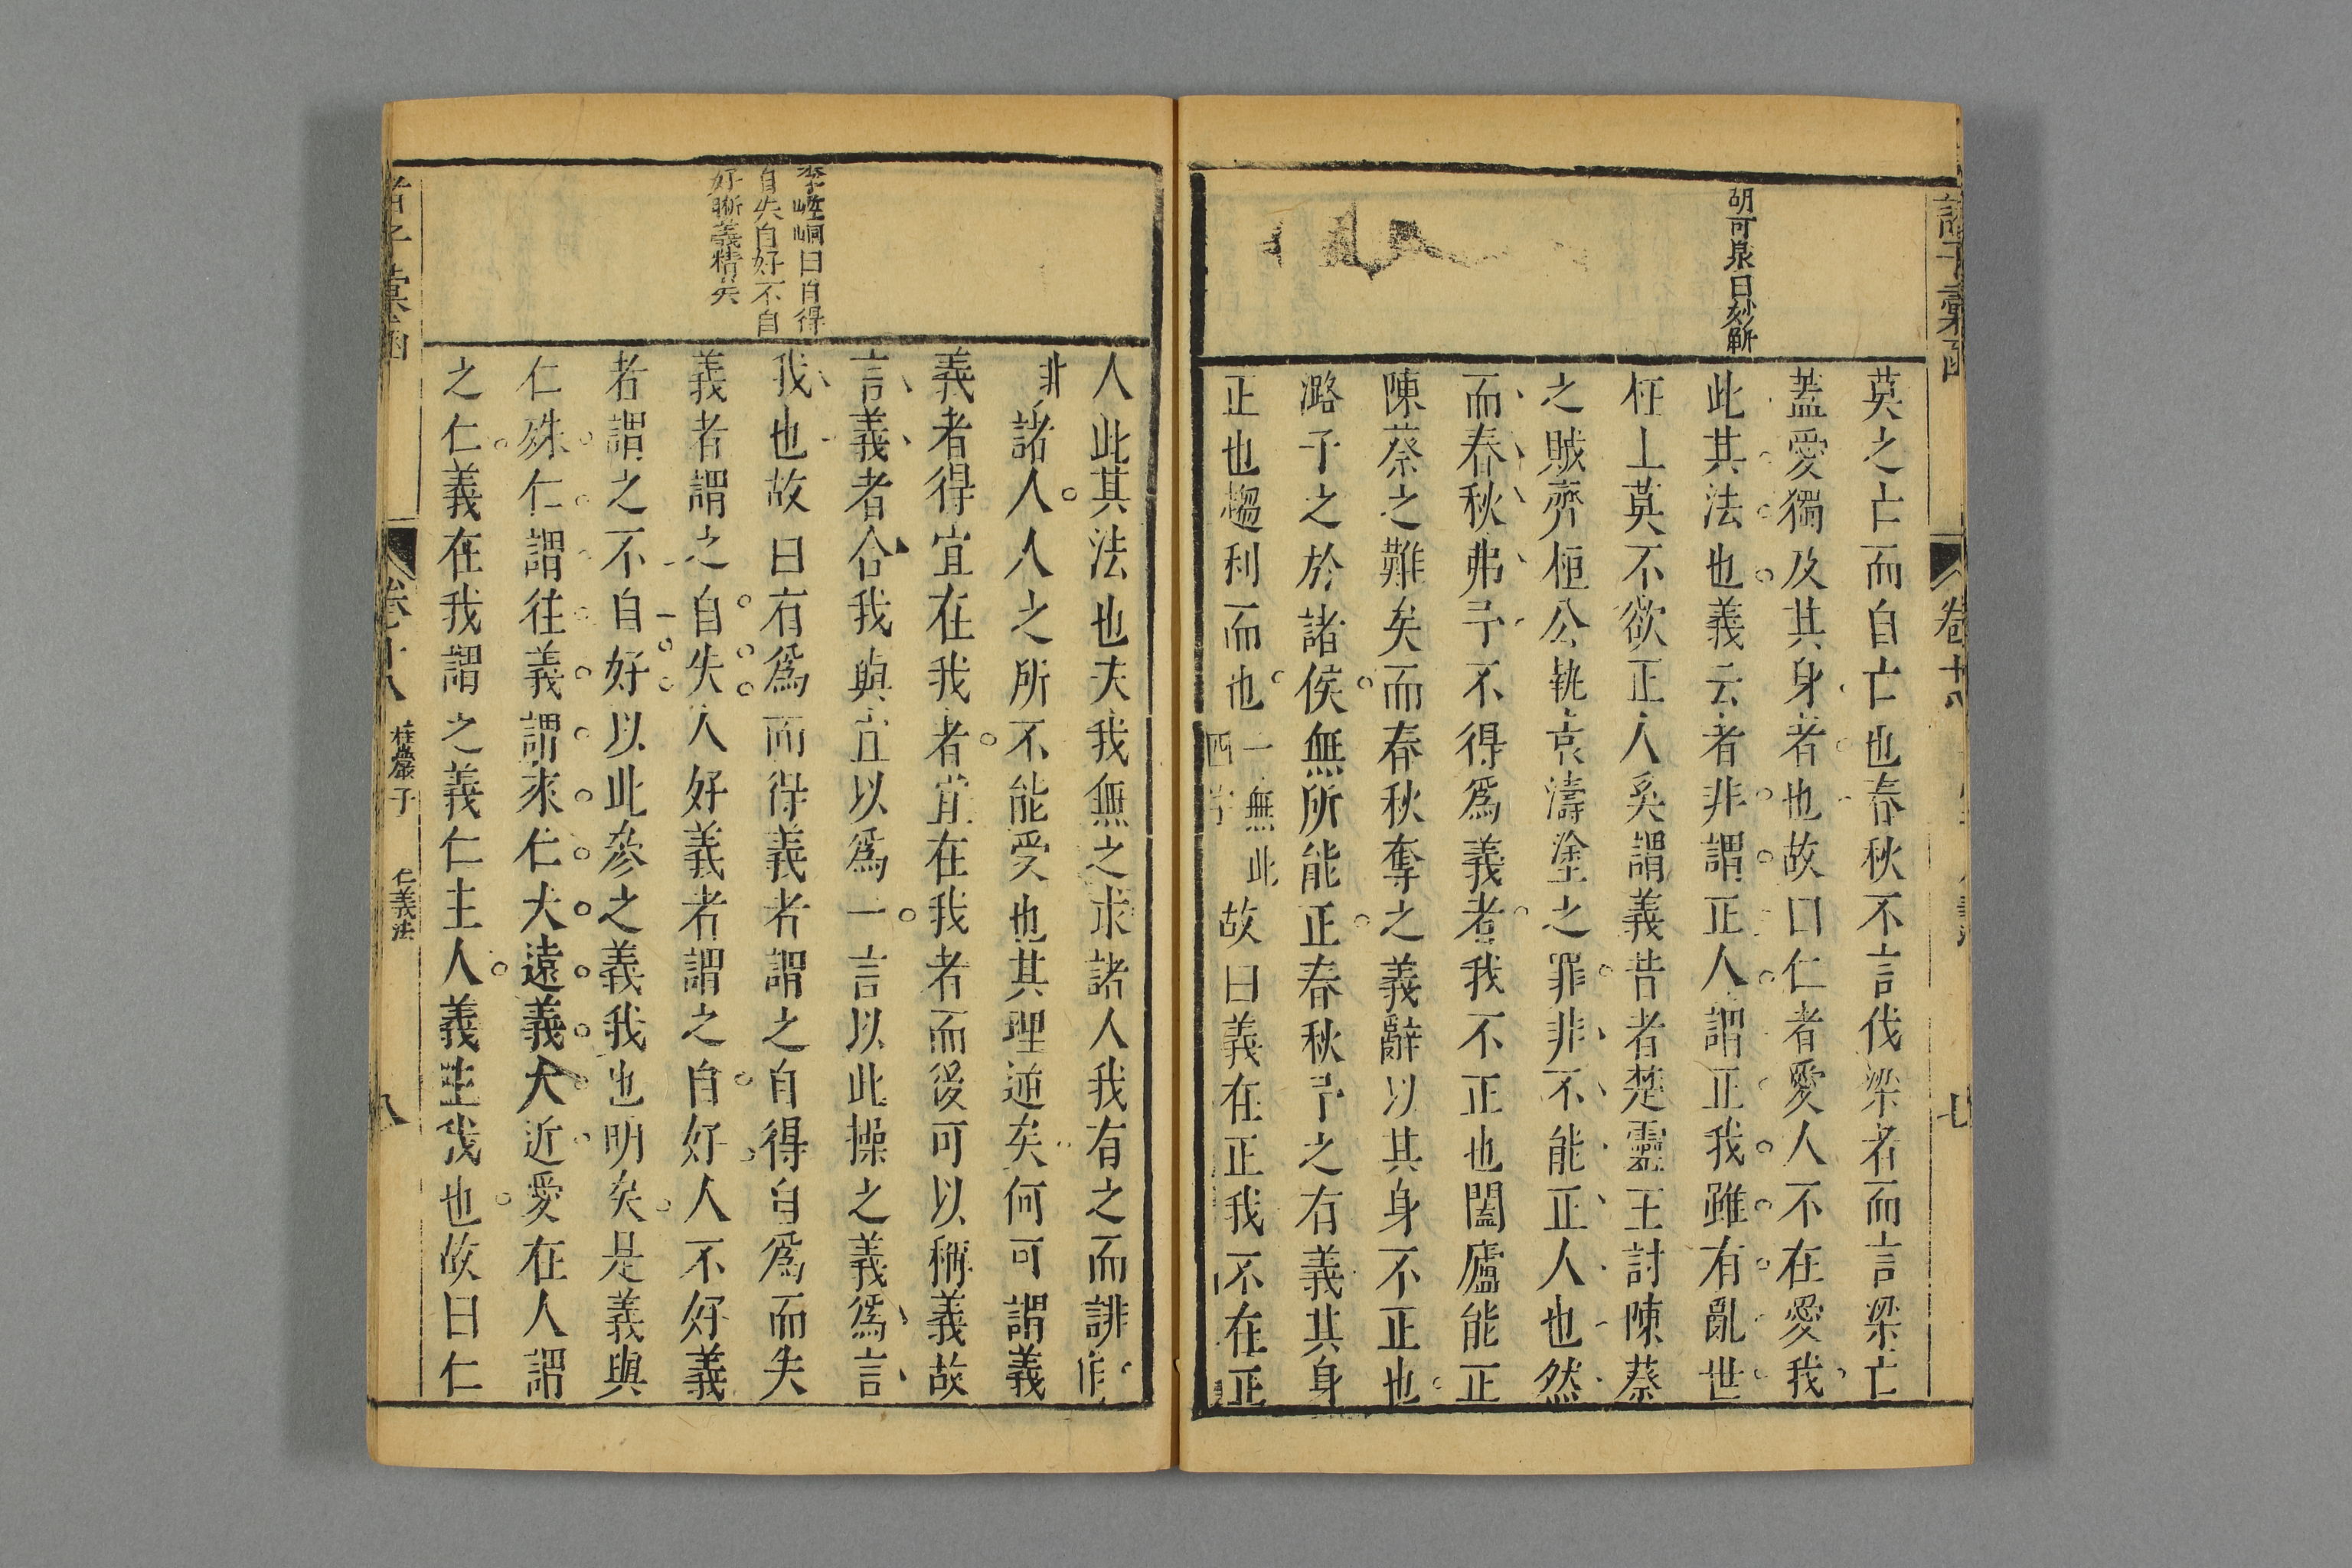 諸子彙函
卷十八
七
胡可泉曰妙解
莫之亡而自亡也春秋不言伐梁者而言梁亡
蓋愛獨及其身者也故曰仁者愛人不在愛我
此其法也義云者非謂正人謂正我雖有亂世
枉上莫不欲正人奚謂義昔者楚靈王討陳蔡
之賊齊桓公執袁濤塗之罪非不能正人也然
而春秋弗予不得爲義者我不正也闔廬能正
陳蔡之難矣而春秋奪之義辭以其身不正也
潞子之於諸侯無所能正春秋予之有義其身
正也趨利而也一無此四字故曰義在正我不在正
李崆峒曰自得
自失自好不自
好晰義精矣
人此其法也夫我無之求諸人我有之而誹
諸人人之所不能受也其理逆矣何可謂義
義者得宜在我者宜在我者而後可以稱義故
言義者合我與宜以爲一言以此操之義爲言
我也故曰有爲而得義者謂之自得有爲而失
義者謂之自失人好義者謂之自好人不好義
者謂之不自好以此參之義我也明矣是義與
仁殊仁謂往義謂來仁大遠義大近愛在人謂
之仁義在我謂之義仁主人義主我也故曰仁
諸子彙函
卷十八
桂巖子
仁義法
八